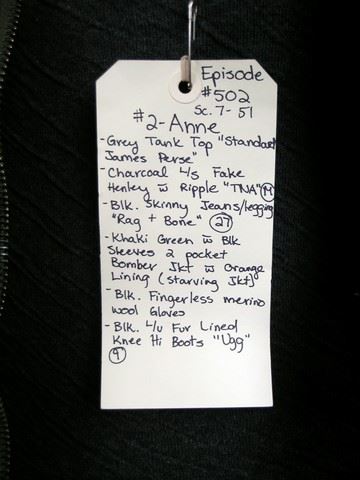 Episode
#502
Sc. 7-51
#2-Anne
-Grey Tank Top "Standard
James Perse"
-Charcoal L/s Fake
Henley w̄ Ripple "TNA" M
-Blk. Skinny Jeans/legging
"Rag + Bone" 27
-Khaki Green w̄ Blk
Sleeves 2 pocket
Bomber Jkt w̄ Orange
Lining (starving Jkt)
-Blk. Fingerless merino
wool Gloves
-Blk. L/u Fur Lined
Knee Hi Boots "Ugg"
9